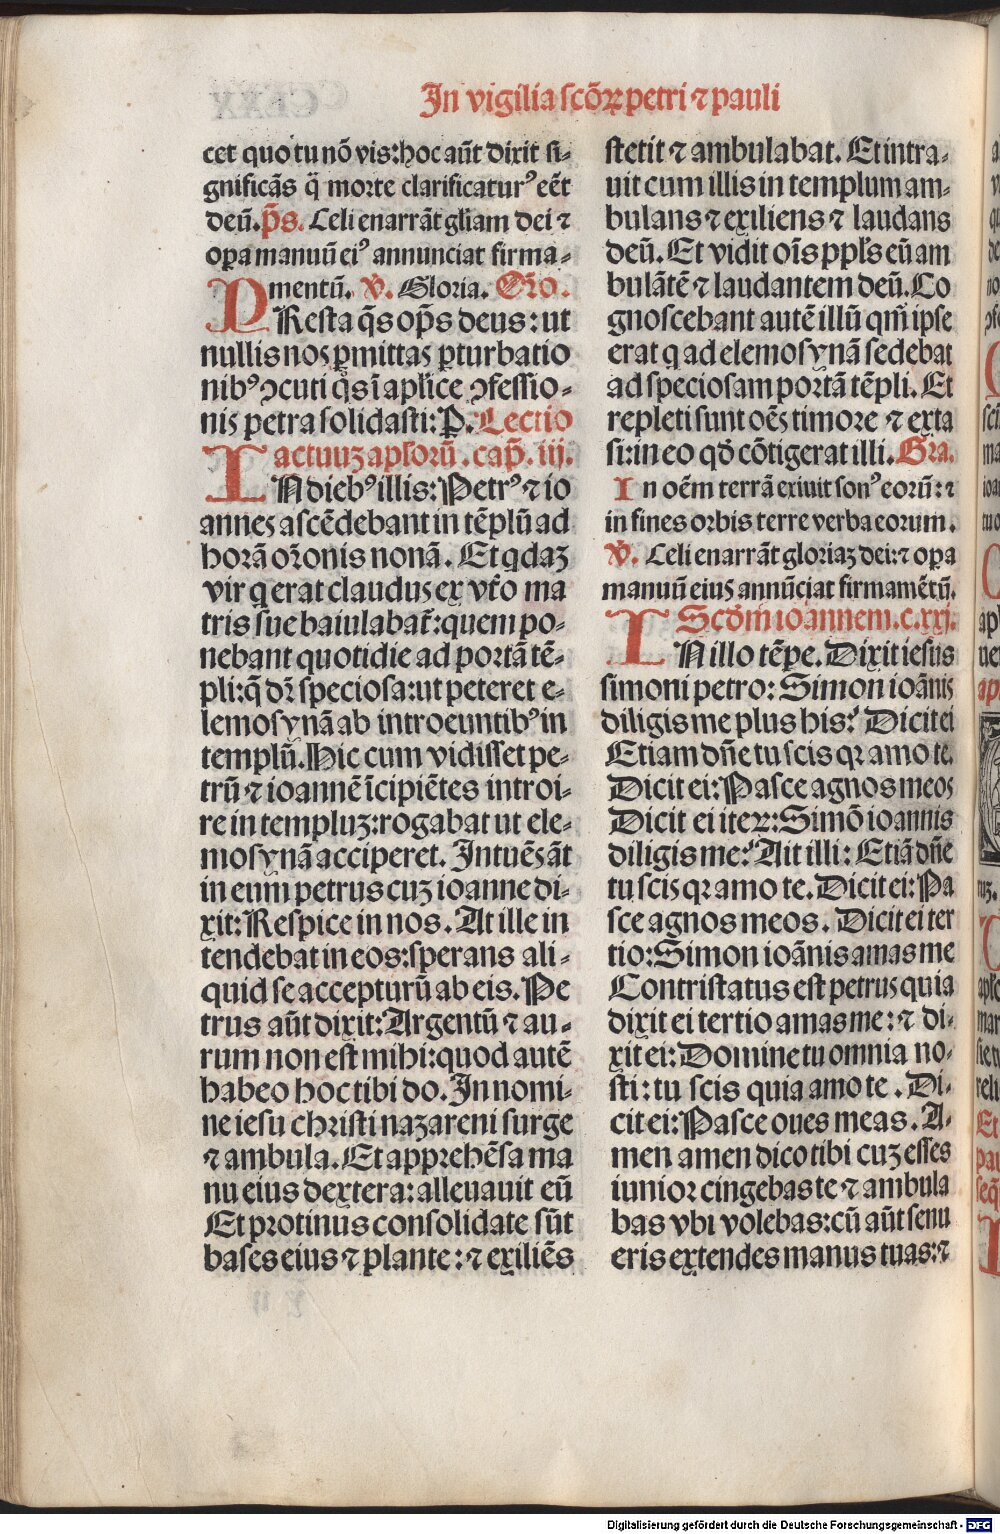 In vigilia scōꝝ petri ⁊ pauli
cet quo tu nō vis: hoc aūt dixit si-
gnificās q̈ morte clarificaturꝰ eēt
deū. p̄s. Celi enarrāt gl̄iam dei ⁊
oꝑa manuū eiꝰ annunciat firma-
mentū. ℣. Gloria. Or̄o.
PResta q̄s op̄s deus: ut
nullis nos ꝑmittas ꝑturbatio
nibꝰ ꝯcuti q̄s ī apl̄ice ꝯfessio-
nis petra solidasti: P. Lectio
actuuꝫ apl̄orū. cap̄. iij.
IN diebꝰ illis: Petrꝰ ⁊ io
annes ascēdebant in tēplū ad
horā or̄onis nonā. Et qdaꝫ
vir q erat claudus ex vt̄o ma
tris sue baiulabat̄: quem po-
nebant quotidie ad portā tē-
pli: q̄ dr̄ speciosa: ut peteret e-
lemosynā ab introeuntibꝰ in
templū. Hic cum vidisset pe-
trū ⁊ ioannē īcipiētes introi-
re in templuꝫ: rogabat ut ele-
mosynā acciperet. Intuēs āt
in eum petrus cuꝫ ioanne di-
xit: Respice in nos. At ille in
tendebat in eos: sperans ali-
quid se accepturū ab eis. Pe
trus aūt dixit: Argentū ⁊ au-
rum non est mihi: quod autē
habeo hoc tibi do. In nomi-
ne iesu christi nazareni surge
⁊ ambula. Et apprehēsa ma
nu eius dextera: alleuauit eū
Et protinus consolidate sūt
bases eius ⁊ plante: ⁊ exiliēs
stetit ⁊ ambulabat. Et intra-
uit cum illis in templum am-
bulans ⁊ exiliens ⁊ laudans
deū. Et vidit oīs ppl̄s eū am
bulātē ⁊ laudantem deū. Co
gnoscebant autē illū qm̄ ipse
erat q ad elemosynā sedebat
ad speciosam portā tēpli. Et
repleti sunt oēs timore ⁊ exta
si: in eo qd̄ cōtigerat illi. Gra.
In oēm terrā exiuit sonꝰ eorū: ⁊
in fines orbis terre verba eorum.
℣. Celi enarrāt gloriaꝫ dei: ⁊ oꝑa
manuū eius annūciat firmamētū.
Scd̄m ioannem. c. xxj.
IN illo tēꝑe. Dixit iesus
simoni petro: Simon ioānis
diligis me plus his? Dicit ei
Etiam dn̄e tu scis qꝛ amo te.
Dicit ei: Pasce agnos meos
Dicit ei iteꝝ: Simō ioannis
diligis me? Ait illi: Etiā dn̄e
tu scis qꝛ amo te. Dicit ei: Pa
sce agnos meos. Dicit ei ter
tio: Simon ioānis amas me
Contristatus est petrus quia
dixit ei tertio amas me: ⁊ di-
xit ei: Domine tu omnia no-
sti: tu scis quia amo te. Di-
cit ei: Pasce oues meas. A-
men amen dico tibi cuꝫ esses
iunior cingebas te ⁊ ambula
bas vbi volebas: cū aūt senu
eris extendes manus tuas: ⁊
Digitalisierung gefördert durch die Deutsche Forschungsgemeinschaft - DFG